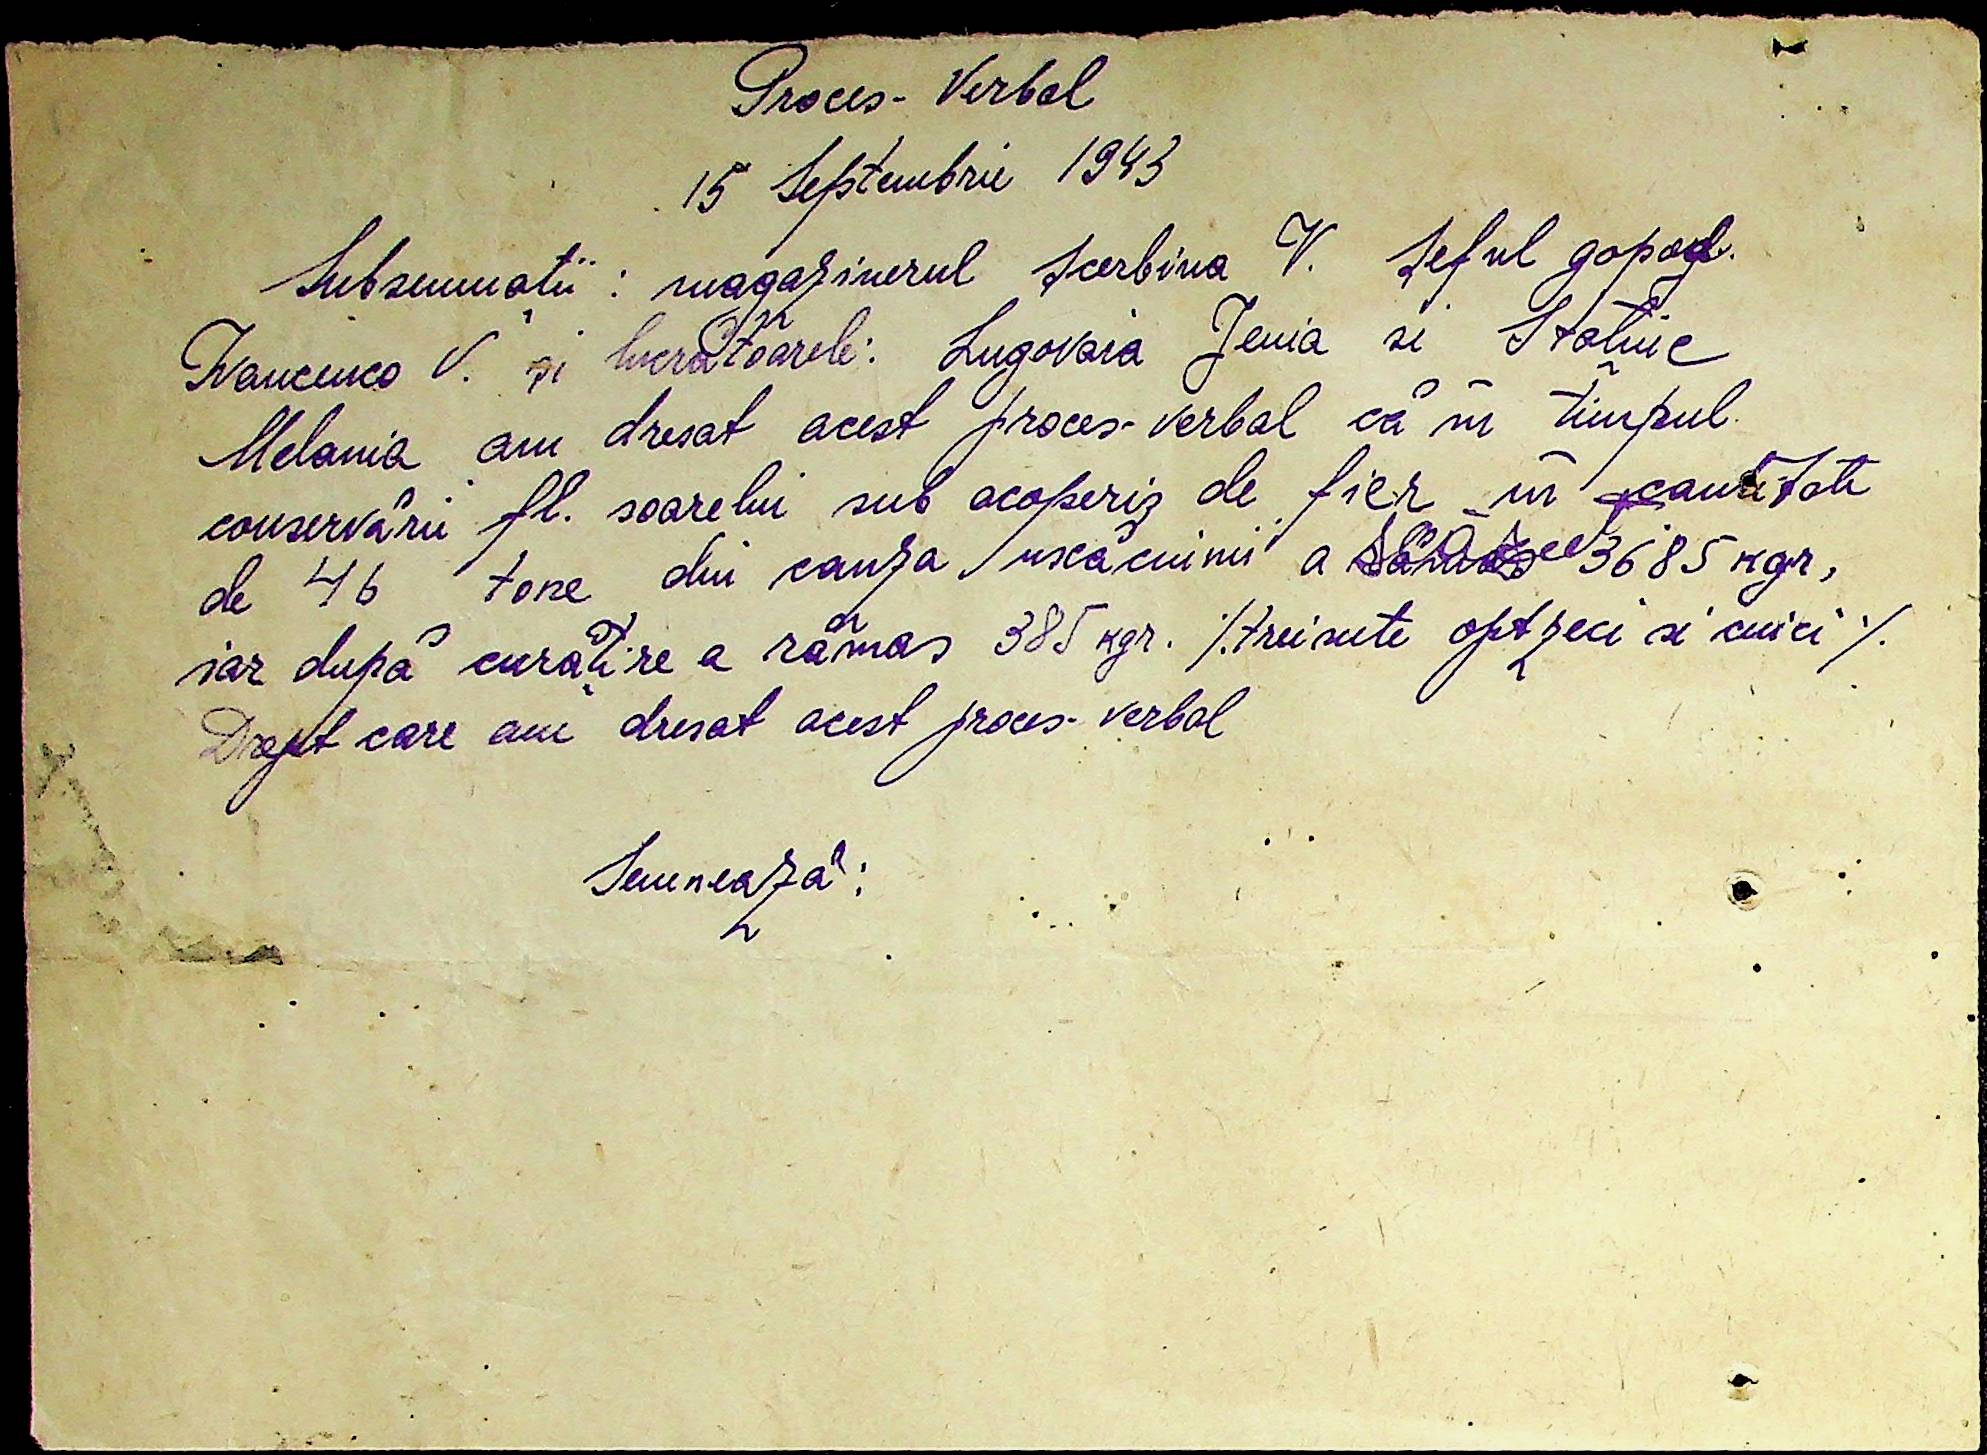 Proces-Verbal
15 Septembrie 1943
Subsemnatii: magazinerul Scerbina V. Șeful gopod.
Ivancenco V. și lucrătoarele: Lugovaia Jenia si Statnic
Melania am dresat acest proces-verbal că în timpul
conservării fl. soarelui sub acoperiș de fier în cantitate
de 46 tone din cauza uscăciunii a 3685 kgr,
iar după curățire a rămas 385 kgr. ./.treisute optzeci si cinci ./.
Drept care am dresat acest proces-verbal
Semnează: